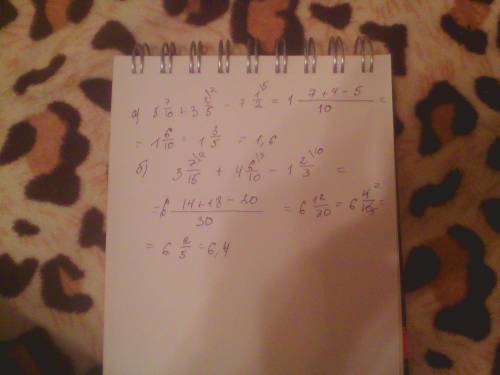 а) 5 7/10 + 3 2/5 \2 - 7 1/2 \5 = 1 (7+4-5)/10 =
= 1 6/10 = 1 3/5 = 1,6
б) 3 7/15 \2 + 4 6/10 \3 - 1 2/3 \10 =
= 6 (14+18-20)/30 = 6 12/30 = 6 4/10 =
= 6 2/5 = 6,4